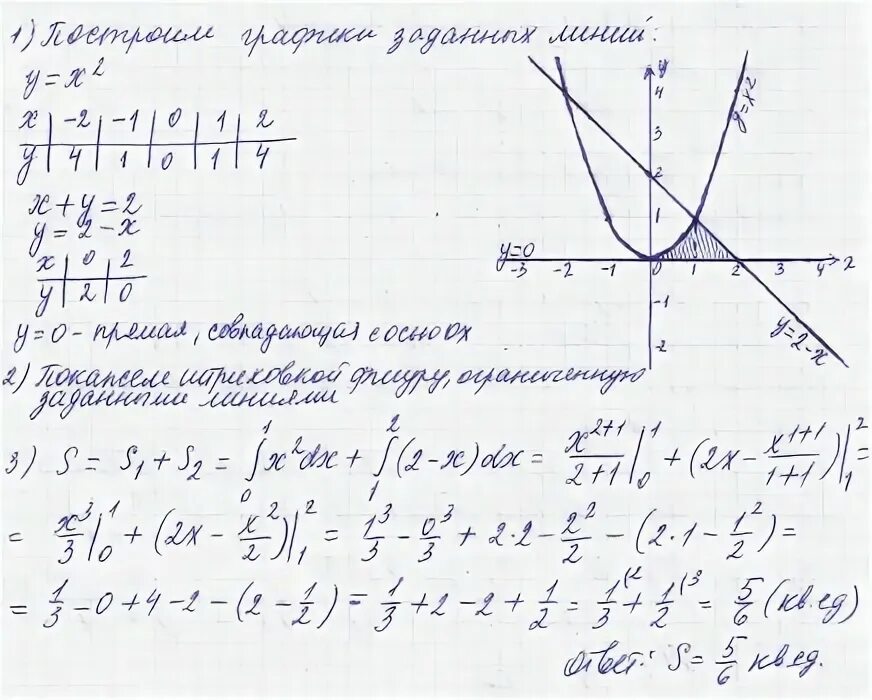 1) Построим графики заданных линий:
y = x²
x | -2 | -1 | 0 | 1 | 2
y | 4 | 1 | 0 | 1 | 4
x + y = 2
y = 2 - x
x | 0 | 2
y | 2 | 0
y = 0 - прямая, совпадающая с осью ох
y
4
3
2
1
y = x²
y=0
-3 -2 -1 0 1 2 3 4 x
-1
-2
y = 2 - x
2) Покажем штриховкой фигуру, ограниченную
заданными линиями
3) S = S₁ + S₂ = ∫₀¹ x² dx + ∫₁² (2 - x) dx = x²⁺¹/(2+1) |₀¹ + (2x - x¹⁺¹/(1+1)) |₁² =
= x³/3 |₀¹ + (2x - x²/2) |₁² = 1³/3 - 0³/3 + 2·2 - 2²/2 - (2·1 - 1²/2) =
= 1/3 - 0 + 4 - 2 - (2 - 1/2) = 1/3 + 2 - 2 + 1/2 = 1/3 (2 + 1/2 (3 = 5/6 (кв.ед)
Ответ: S = 5/6 кв.ед.